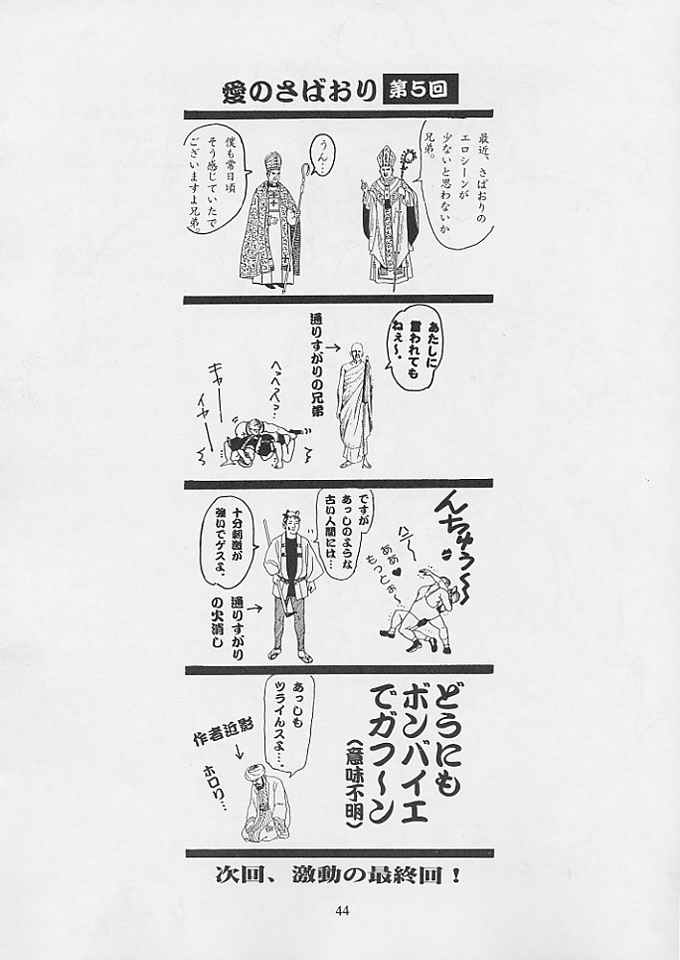 愛のさばおり 第5回
最近、さばおりの
エロシーンが
少ないと思わないか
兄弟。
うん…
僕も常日頃
そう感じていたで
ございますよ兄弟。
あたしに
言われても
ねぇ〜。
通りすがりの兄弟
へっへっへっ…
キャーー
イヤーー
んちゅぅ〜
ハァ〜
ああ♥
もっとぉ〜
ですが
あっしのような
古い人間には…
十分刺激が
強いでゲスよ。
通りすがり
の火消し
どうにも
ボンバイエ
でガフ〜ン
(意味不明)
あっしも
ツライんスよ…。
作者近影
ホロリ…
次回、激動の最終回！
44